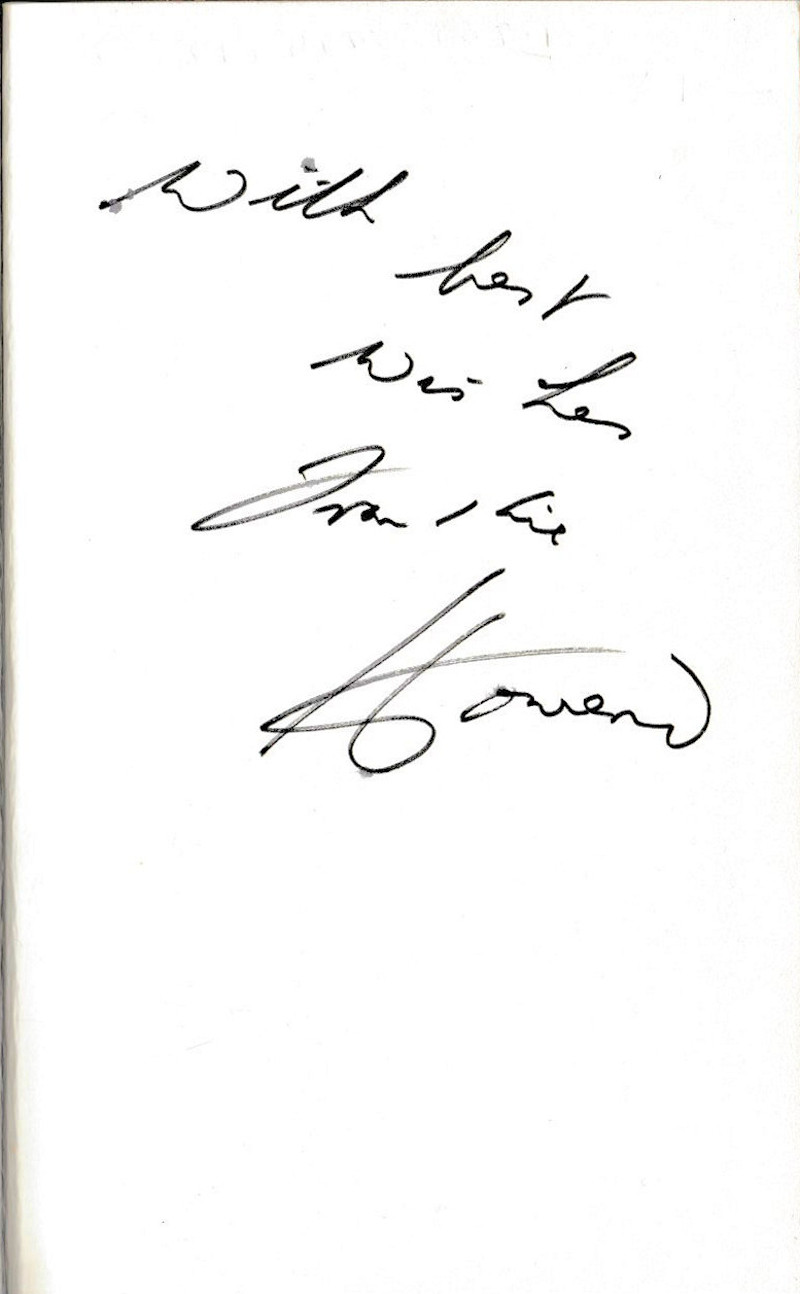 With
best
wishes
Frankie
Howerd